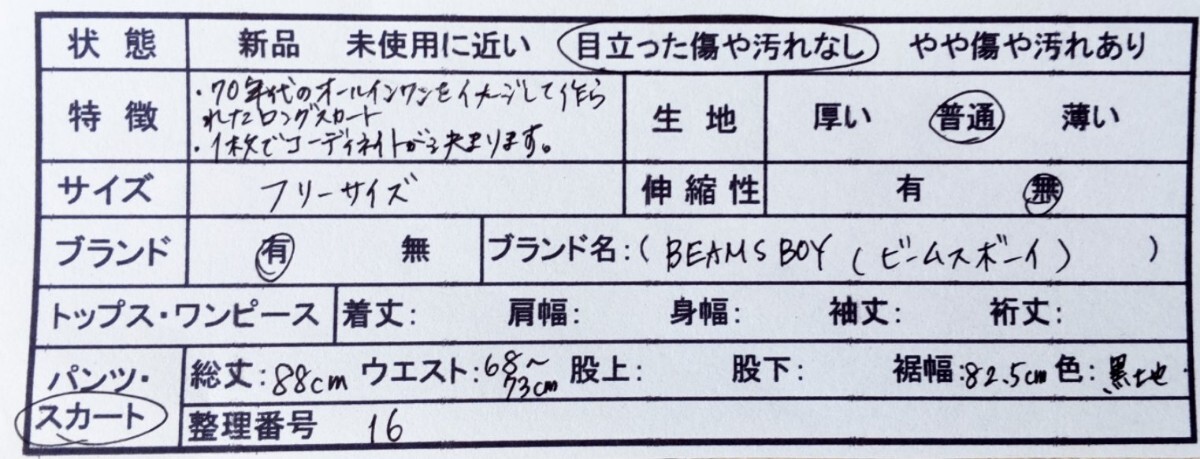 状態 新品 未使用に近い 目立った傷や汚れなし やや傷や汚れあり
特徴 ・70年代のオールインワンをイメージして作ら
れたロングスカート
・1枚でコーディネイトが決まります。
生地 厚い 普通 薄い
サイズ フリーサイズ 伸縮性 有 無
ブランド 有 無 ブランド名:( BEAMS BOY (ビームスボーイ) )
トップス・ワンピース 着丈: 肩幅: 身幅: 袖丈: 裄丈:
パンツ・
スカート
総丈:88cm ウエスト:68〜
73cm 股上: 股下: 裾幅:82.5cm 色:黒地
整理番号 16